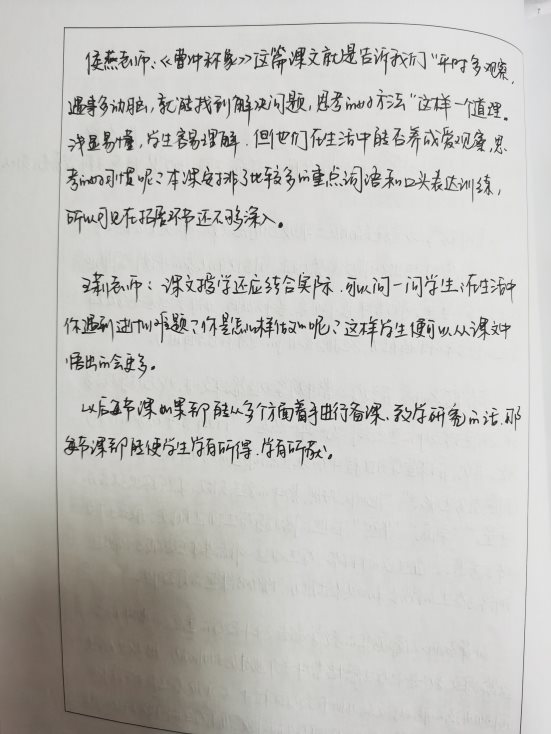 侯燕老师：《曹冲称象》这篇课文就是告诉我们"平时多观察，
遇事多动脑，就能找到解决问题，思考的好方法"这样一个道理。
浅显易懂，学生容易理解．但他们在生活中能否养成爱观察，思
考的好习惯呢？本课安排了比较多的重点词语和口头表达训练，
所以可见在拓展环节还不够深入。
老师：课文教学还应结合实际．可以问一问学生：在生活中
你遇到过什么难题？你是怎么样做的呢？这样学生便可以从课文中
悟出的会更多。
以后每节课如果都能从多个方面着手进行备课、教学研究的话．那
每节课都能使学生学有所得．学有所获。